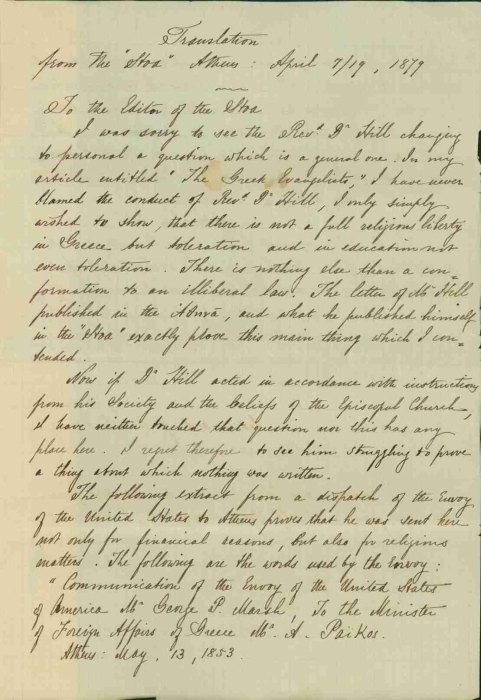 Translation
from the "Stoa" Athens : April 7/19, 1879
To the Editor of the Stoa
I was sorry to see the Revd. Dr Hill changing
to personal a question which is a general one. In my
article entitled "The Greek Evangelists," I have never
blamed the conduct of Revd. Dr Hill, I only simply
wished to show, that there is not a full religious liberty
in Greece but toleration and in education not
even toleration. There is nothing else than a con=
formation to an illiberal law. The letter of Mr Hill
published in the and what he published himself
in the "Stoa" exactly prove this main thing which I con=
tended.
Now if Dr Hill acted in accordance with instructions
from his Society and the beliefs of the Episcopal Church,
I have neither touched that question nor this has any
place here. I regret therefore to see him struggling to prove
a thing about which nothing was written.
The following extract from a dispatch of the Envoy
of the United States to Athens proves that he was sent here
not only for financial reasons, but also for religious
matters. The following are the words used by the Envoy :
"Communication of the Envoy of the United States
of America Mr George P. Marsh, To the Minister
of Foreign Affairs of Greece Mr. A. Païkos.
Athens : May, 13, 1853.